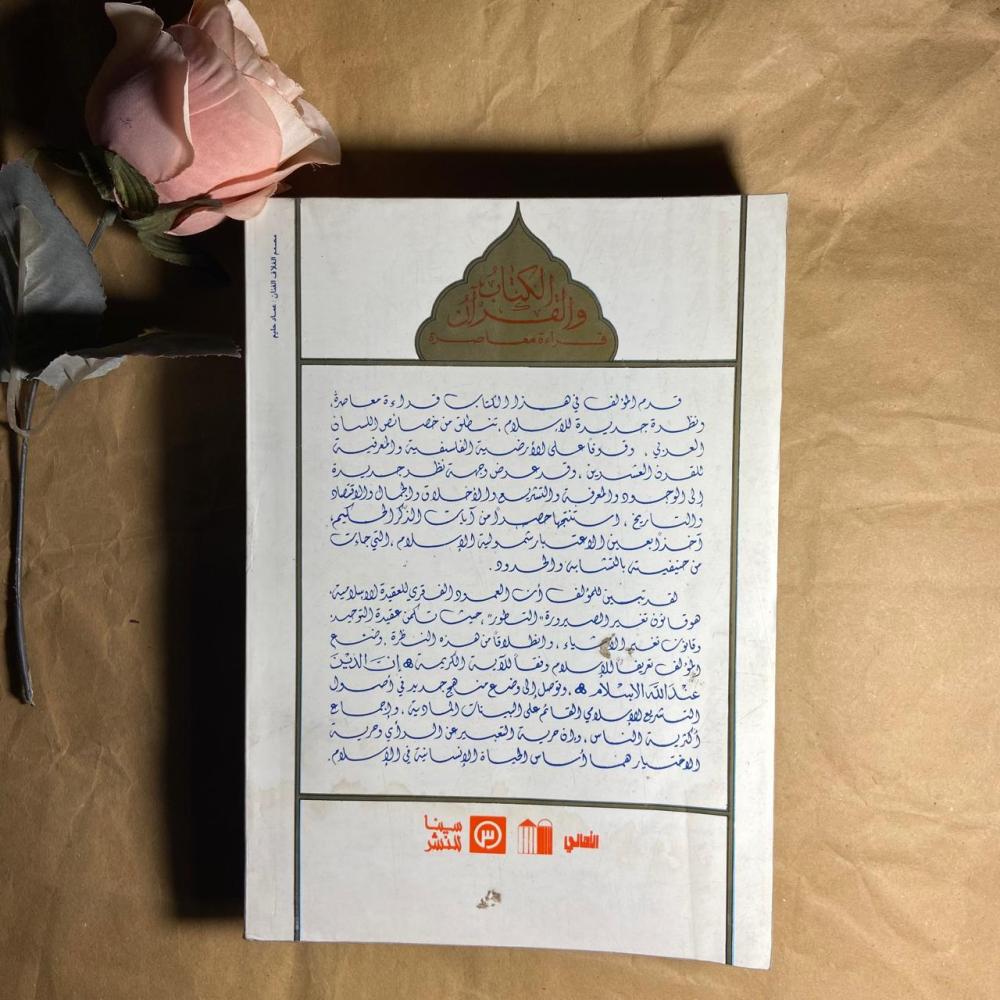 الكتاب
والقرآن
قراءة معاصرة
قدم المؤلف في هذا الكتاب قراءة معاصرة،
ونظرة جديدة للإسلام، تنطلق من خصائص اللسان
العربي، وقوفاً على الأرضية الفلسفية والمعرفية
للقرن العشرين، وقد عرض وجهة نظر جديدة
إلى الوجود والمعرفة والتشريع والأخلاق والجمال والاقتصاد
والتاريخ، استنتجها حصراً من آيات الذكر الحكيم،
آخذاً بعين الاعتبار شمولية الإسلام، التي جاءت
من حنيفيته بالتشابه والحدود.
لقد تبين للمؤلف أن العمود الفقري للعقيدة الإسلامية،
هو قانون تغير الصيرورة "التطور"، حيث تكمن عقيدة التوحيد،
وقانون تغير الأشياء، وانطلاقاً من هذه النظرة، وضع
المؤلف تعريفاً للإسلام وفقاً للآية الكريمة ﴿إن الدين
عند الله الإسلام﴾، وتوصل إلى وضع منهج جديد في أصول
التشريع الإسلامي القائم على البينات المادية، وإجماع
أكثرية الناس، وان حرية التعبير عن الرأي وحرية
الاختيار هما أساس الحياة الإنسانية في الإسلام.
الأهالي
سينا
للنشر
مصمم الغلاف الفنان: عماد حليم